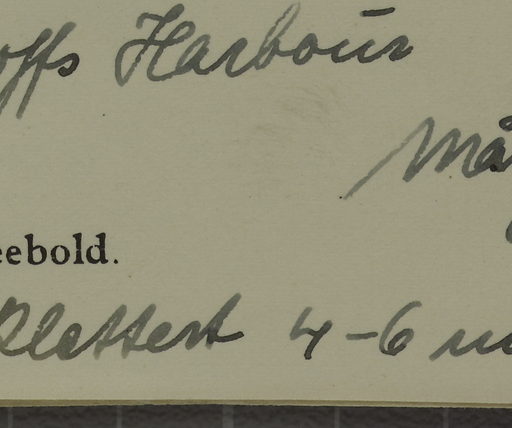 offs Harbour
Mä
eebold.
klettert 4-6 m